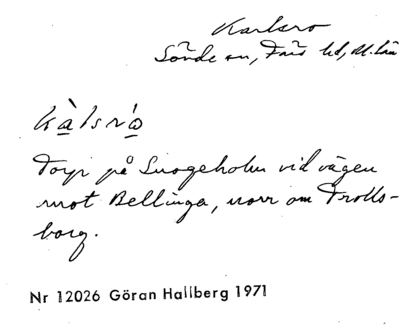 Karlsro
Sövde sn, Färs hd, M. län
kàlsró
Torp på Snogeholm vid vägen
mot Bellinga, norr om Trolls-
borg.
Nr 12026 Göran Hallberg 1971